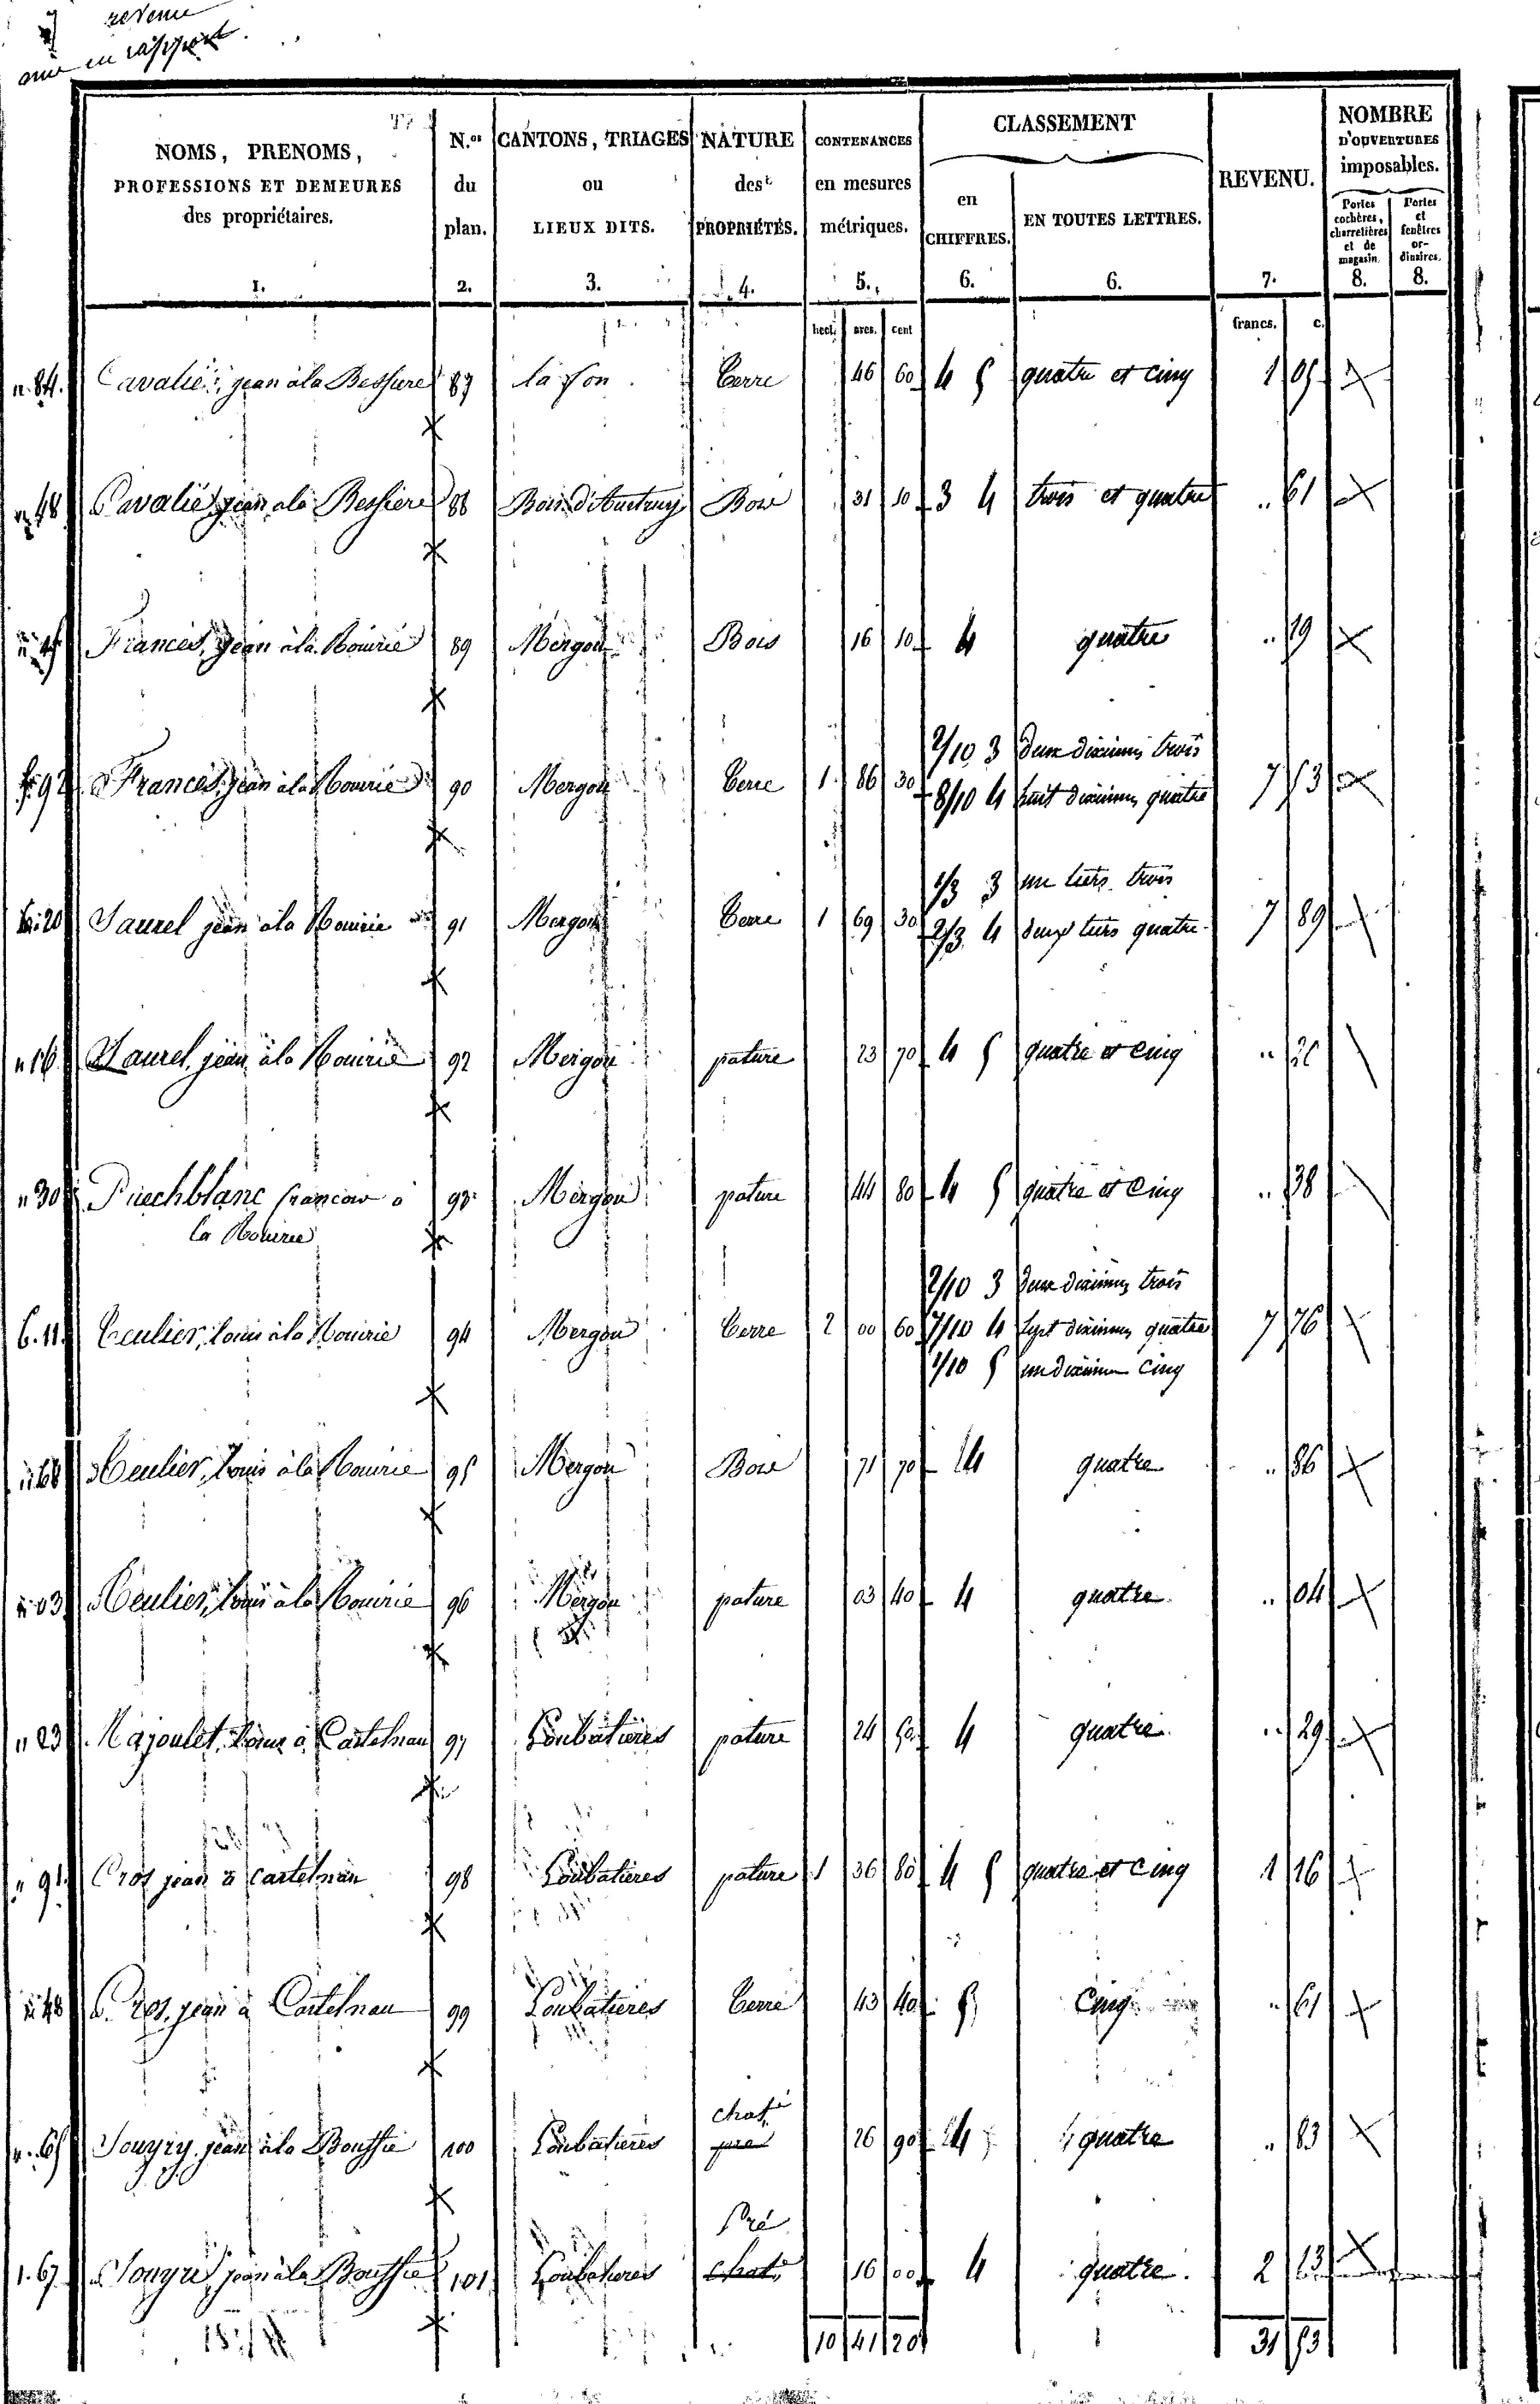 revenu
en rapport.
NOMS, PRENOMS,
PROFESSIONS ET DEMEURES
des propriétaires.
1.
N.os
du
plan.
2.
CANTONS, TRIAGES
ou
LIEUX DITS.
3.
NATURE
des
PROPRIÉTÉS.
4.
CONTENANCES
en mesures
métriques.
5.
CLASSEMENT
en
CHIFFRES.
6.
EN TOUTES LETTRES.
6.
REVENU.
7.
NOMBRE
D'OUVERTURES
imposables.
Portes
cochères,
charretières
et de
magasin.
8.
Portes
et
fenêtres
or-
dinaires.
8.
hect. ares. cent francs. c.
n. 84. Cavalié, jean à la Bessiere 87 la fon. Terre 46 60 4 5 quatre et cinq 1 05
48 Cavalié jean à la Bessiere 88 Bois Bois 31 10 3 4 trois et quatre .. 61
Francès, jean à la Rouirié 89 Mergou Bois 16 10 4 quatre .. 19
2/10 3 deux dixiemes trois
92 Francès, jean à la Rouirié 90 Mergou Terre 1 86 30 8/10 4 huit dixiemes quatre 7 53
1/3 3 un tiers trois
20 Saurel jean à la Rouirie 91 Mergou Terre 1 69 30 2/3 4 deux tiers quatre 7 89
n 16 Saurel, jean à la Rouirie 92 Mergou pature 23 70 4 5 quatre et cinq .. 20
n 30 Puechblanc francois à 93 Mergou pature 44 80 4 5 quatre et cinq .. 38
la Rouirie
2/10 3 deux dixiemes trois
6. 11. Teulier, louis à la Rouirié 94 Mergou Terre 2 00 60 7/10 4 sept dixiemes quatre 7 76
1/10 5 un dixieme cinq
68 Teulier, louis à la Rouirie 95 Mergou Bois 71 70 4 quatre .. 86
03 Teulier, louis à la Rouirie 96 Mergou pature 03 40 4 quatre .. 04
23 Majoulet, à Castelnau 97 Loubatieres pature 24 50 4 quatre .. 29
91 Cros jean à Castelnau 98 Loubatieres pature 1 36 80 4 5 quatre et cinq 1 16
48 Cros, jean à Castelnau 99 Loubatieres Terre 43 40 5 Cinq .. 61
chat.
65 Souyry jean à la Bouffie 100 Loubatieres 26 90 4 quatre .. 83
Pré
1. 67 Souyri, jean à la Bouffie 101 Loubatieres chat. 16 00 4 quatre. 2 13
10 41 20 31 53